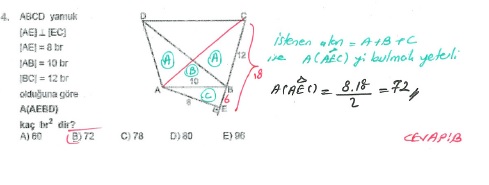 4. ABCD yamuk
[AE] ⊥ [EC]
|AE| = 8 br
|AB| = 10 br
|BC| = 12 br
olduğuna göre
A(AEBD)
kaç br² dir?
A) 60 B) 72 C) 78 D) 80 E) 96
D C
A A 12 18
B
10
A B
C 6
8 E
istenen alan = A+B+C
ise A(AEC) yi bulmak yeterli
A(AEC) = 8.18 / 2 = 72 //
CEVAP:B